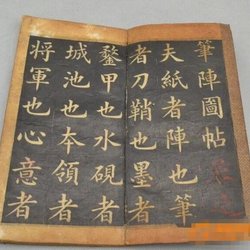 筆陣圖帖
夫紙者陣也筆
者刀鞘也墨者
鍪甲也水硯者
城池也本領者
將軍也心意者